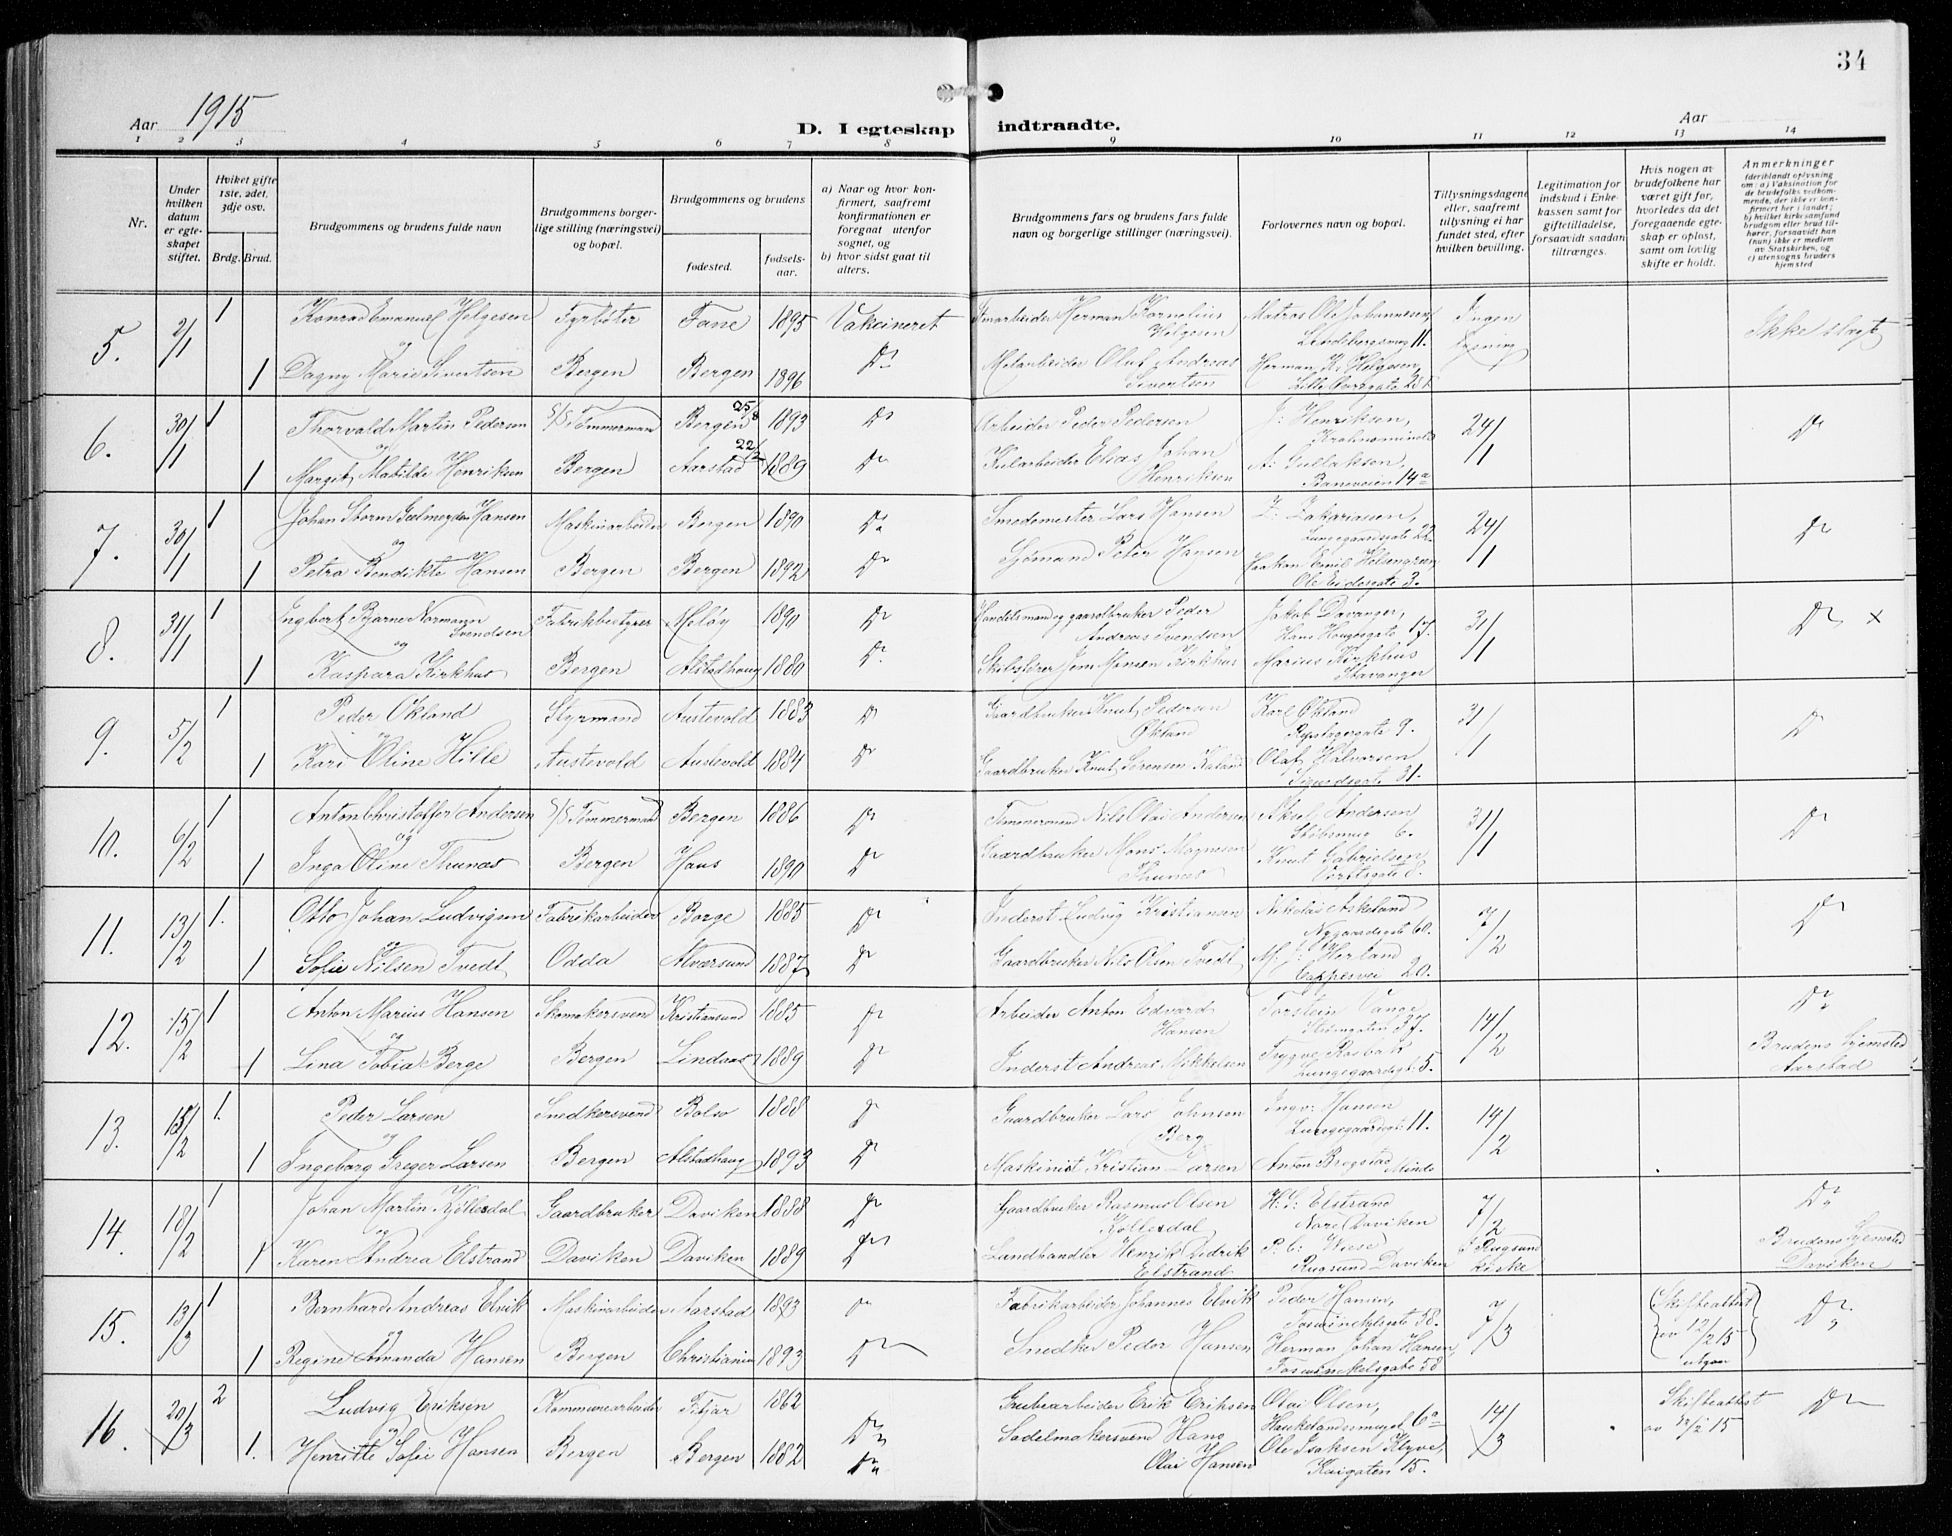 34
Aar 1915
D. I egteskap indtraadte.
Aar
1 2 3 4 5 6 7 8 9 10 11 12 13 14
Nr.
Under hvilken datum er egteskapet stiftet.
Hviket gifte 1ste, 2det, 3dje osv.
Brdg. Brud.
Brudgommens og brudens fulde navn
Brudgommens borgerlige stilling (næringsvei) og bopæl.
Brudgommens og brudens
fødested.
fødselsaar.
a) Naar og hvor konfirmert, saafremt konfirmationen er foregaat utenfor sognet, og
b) hvor sidst gaat til alters.
Brudgommens fars og brudens fars fulde navn og borgerlige stillinger (næringsvei).
Forlovernes navn og bopæl.
Tillysningsdagene eller, saafremt tillysning ei har fundet sted, efter hvilken bevilling.
Legitimation for indskud i Enkekassen samt for giftetilladelse, forsaavidt saadan tiltrænges.
Hvis nogen av brudefolkene har været gift før, hvorledes da det foregaaende egteskap er opløst, samt om lovlig skifte er holdt.
Anmerkninger
(deriblandt oplysning om: a) Vaksination for de brudefolks vedkommende, der ikke er konfirmert her i landet; b) hvilket kirkesamfund brudgom eller brud tilhører, forsaavidt han (hun) ikke er medlem av Statskirken, og c) utensogns bruders hjemsted
5. 2/1 1 Konrad Emanuel Helgesen Fyrbøter Fane 1895 Vakcineret Herman Kornelius Helgesen Matros Ole Johannesen 11. Ingen lysning Ikke slegt
og
1 Dagny Marie Sivertsen Bergen Bergen 1896 Do Olaf Andreas Sivertsen Herman K. Helgesen,
6. 30/1 1 Thorvald Martin Pedersen S/S Tømmermand Bergen 25/8 1893 Do Arbeider Peder Pedersen J. Henriksen, 24/1 Do
og
1 Margit Matilde Henriksen Bergen Aarstad 22/2 1889 Do Elias Johan Henriksen A. Gullaksen, 14a
7. 30/1 1 Johan Storm Hansen Maskinarbeider Bergen 1890 Do Smedemester Lars Hansen Z. Zakariassen, Lungegaardsgate 22. 24/1 Do
og
1 Petra Bendikte Hansen Bergen Bergen 1892 Do Sjømand Peter Hansen Haakon Emil Ole Eidesgate 3.
8. 31/1 1 Ingbert Bjarne Normann Svendsen Fabrikbestyrer Meløy 1890 Do Handelsmand og gaardbruker Peder Andreas Svendsen Jakob Davanger, Hans Haugesgate 17. 31/1 Do x
og
1 Kaspara Kirkhus Bergen Alstadhaug 1880 Do Skibsfører Monsen Kirkhus Marius Kirkhus Stavanger
9. 5/2 1 Peder Økland Styrmand Austevold 1883 Do Gaardbruker Knut Pedersen Økland Karl Økland 9. 31/1 Do
og
1 Kari Oline Hille Austevold Austevold 1884 Do Gaardbruker Knut Sørensen Olaf Halvorsen Sigurdsgate 31.
10. 6/2 1 Anton Christoffer Andersen S/S Tømmermand Bergen 1886 Do Tømmermand Nils Olai Andersen Aksel Andersen Skibsmug 6. 31/1 Do
og
1 Inga Oline Thunæs Bergen Haus 1890 Do Gaardbruker Mons Magnesen Thunæs Knut Gabrielsen 8.
11. 13/2 1. Otto Johan Ludvigsen Fabrikarbeider Borge 1885 Do Inderst Ludvig Kristiansen Nikolai Askeland 60. 7/2 Do
og
1 Sofie Nilsen Tvedt Odda Alversund 1887 Do Gaardbruker Nils Olsen Tvedt M. J. Herland 20.
12. 15/2 1 Anton Marius Hansen Skomakersvend Kristiansund 1885 Do Arbeider Anton Edvard Hansen Torstein Vange 37. 14/2 Do
og
1 Lina Tobia Berge Bergen Lindaas 1889 Do Inderst Andreas Mikkelsen Trygve Lungegaardsgt 5. Brudens hjemsted Aarstad
13. 15/2 1. Peder Larsen Snedkersvend Bolsø 1888 Do Gaardbruker Lars Johnsen Berg Ingv. Hansen Lungegaardsgt. 11. 14/2
og
1 Ingeborg Greger Larsen Bergen Alstadhaug 1893 Do Maskinist Kristian Larsen Anton Brogstad Minde
14. 18/2 1 Johan Martin Kjøllesdal Gaardbruker Daviken 1888 Do Gaardbruker Rasmus Olsen Køllesdal H. S. Elstrand Nore Daviken 7/2 Do
og
1 Karen Andrea Elstrand Daviken Daviken 1889 Do Landhandler Henrik Didrik Elstrand P. C. Wiese Rugsund Daviken i Rugsund kirke Brudens hjemsted Daviken
15. 13/3 1 Bernhard Andreas Elvik Maskinarbeider Aarstad 1893 Do Fabrikarbeider Johannes Elvik Peder Hansen, 58. 7/3 (Skifteattest av 12/2 15 utgaar) Do
og
1 Regine Amanda Hansen Bergen Christiania 1893 Do Snedker Peder Hansen Herman Johan Hansen, 58
16. 20/3 2 Ludvig Eriksen Kommunearbeider Fitjar 1862 Do Grubearbeider Erik Eriksen Olai Olsen, Haukelandsmuget 6a 14/3 Skifteattest av 12/2 15 Do
og
1. Henritte Sofie Hansen Bergen Bergen 1882 Do Sadelmakersvend Hans Olai Hansen Ole Isaksen Klyve, Kaigaten 15.